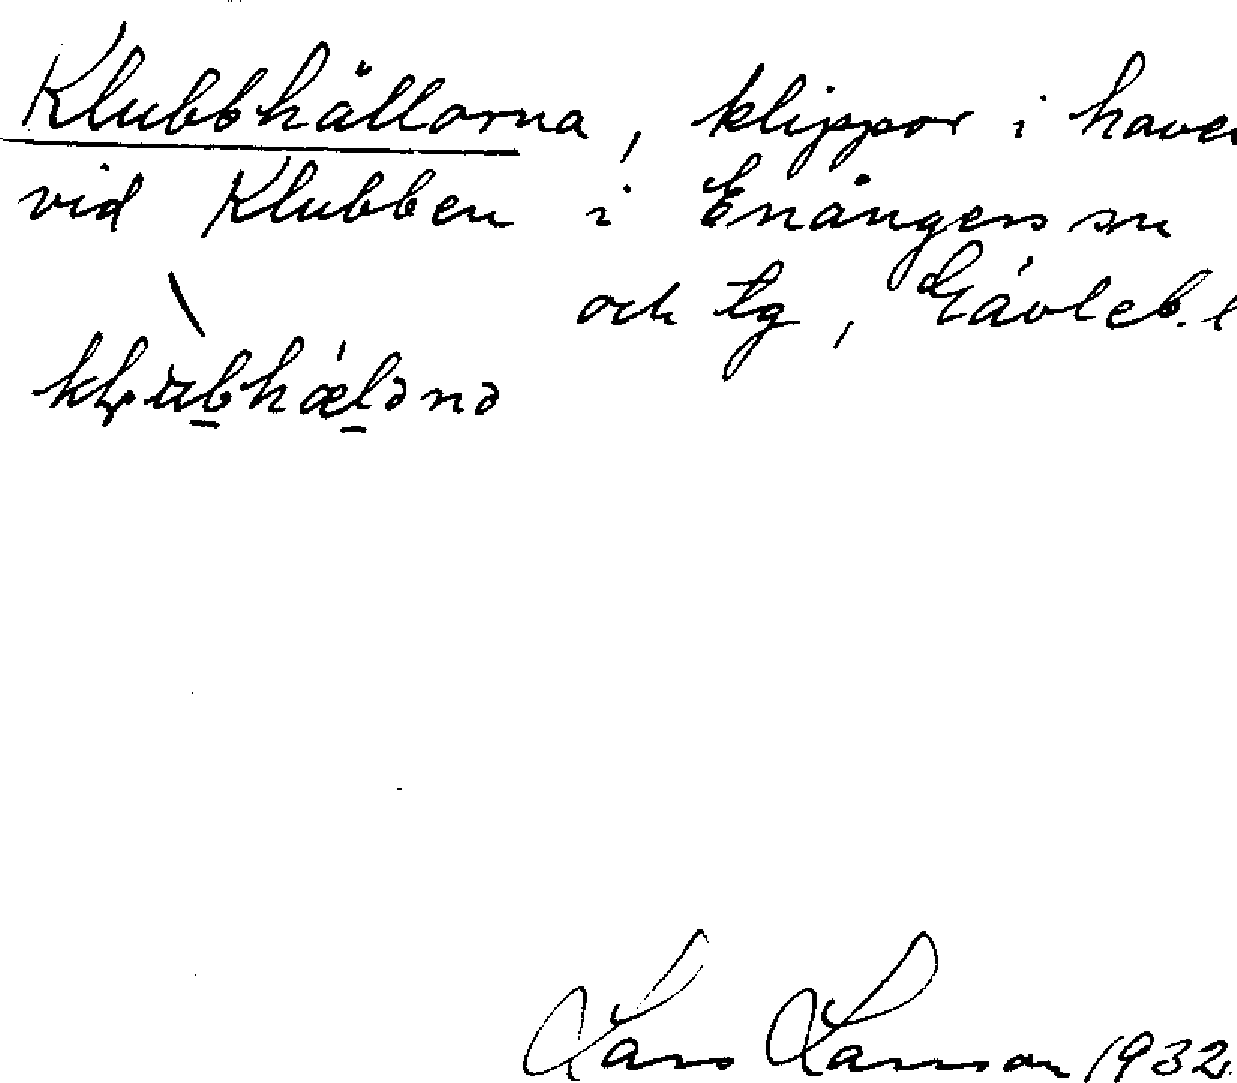 Klubbhällorna, klippor i have
vid Klubben i Enångers sn
och tg, Gävleb. l
Lars Larsson 1932.